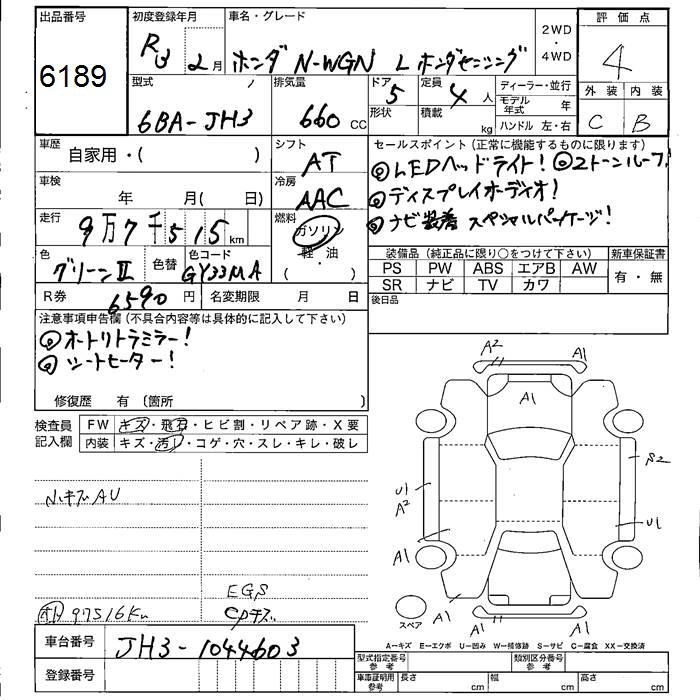 出品番号
6189
初度登録年月
R3 2月
車名・グレード
ホンダ N-WGN L ホンダセンシング
2WD
・
4WD
評価点
4
外装 内装
C B
型式
6BA-JH3
排気量
660 CC
ドア 5
形状
定員 4 人
積載 kg
ディーラー・並行
モデル年式 年
ハンドル 左・右
車歴 自家用・( )
シフト
AT
車検 年 月( 日)
冷房
AAC
走行
9万7千515km
燃料
ガソリン
軽・油
( )
色
グリーンⅡ
色替
色コード
GY33MA
R券 6590 円
名変期限 月 日
セールスポイント (正常に機能するものに限ります)
◎LEDヘッドライト! ◎2トーンルーフ!
◎ディスプレイオーディオ!
◎ナビ装着 スペシャルパッケージ!
装備品 (純正品に限り○をつけて下さい)
新車保証書
PS PW ABS エアB AW
有・無
SR ナビ TV カワ
後日品
注意事項申告欄 (不具合内容等は具体的に記入して下さい)
◎オートリトラミラー!
◎シートヒーター!
修復歴 有 〔箇所 〕
検査員記入欄
FW キズ・飛石・ヒビ割・リペア跡・X要
内装 キズ・汚レ・コゲ・穴・スレ・キレ・破レ
小キズAU
97516Km
EGS
A2 A1
A1
U1
A2
S2
U1
A1
A1
A1
A1
A1
スペア
A-キズ E-エクボ U-凹み W-補修跡 S-サビ C-腐食 XX-交換済
車台番号
JH3-1044603
登録番号
型式指定番号 参考
類別区分番号 参考
車庫証明用 参考
長さ cm
幅 cm
高さ cm